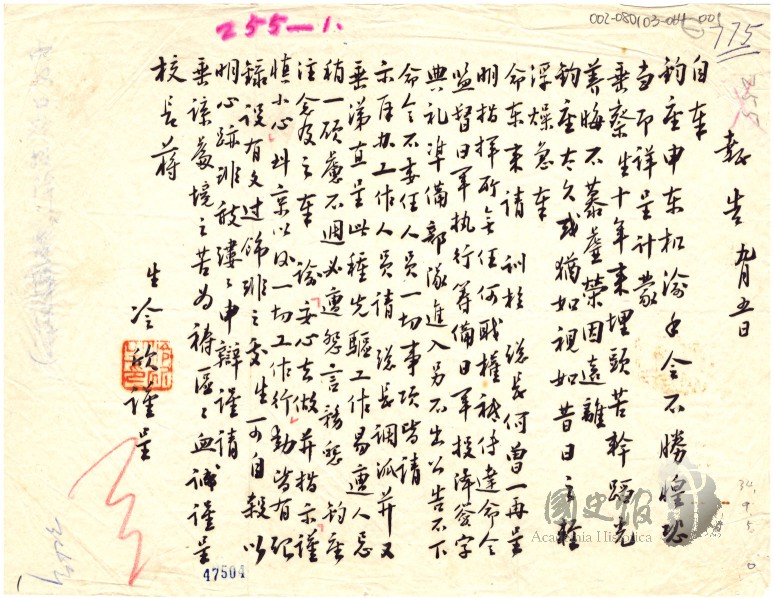 002-080103-064-001
775
255-1.
報告 九月五日
自奉
鈞座申東機渝手令不勝惶恐
當即詳呈計蒙
垂察生十年來埋頭苦幹蹈光
養晦不慕虛榮因遠離
鈞座太久或猶如視如昔日之輕
浮燥急奉
命東來請訓於總長何曾一再呈
明指揮所無任何職權祇傳達命令
監督日軍執行籌備日軍投降簽字
典礼準備部隊進入另不出公告不下
命令不委任人員一切事項皆請
示再加工作人員請總長調派并又
垂涕直呈此種先驅工作易遭人忌
稍一顧慮不週必遭怨言務懇 鈞座
注念及之奉 諭安心去做并指示謹
慎小心到京以後一切工作行動皆有紀
錄設有文過飾非之處生可自殺以
明心跡非敢瑣瑣申辯謹請
垂諒處境之苦為禱區區血誠謹呈
校長蔣
生冷欣謹呈
34.9.5
47504
國史館
Academia Historica